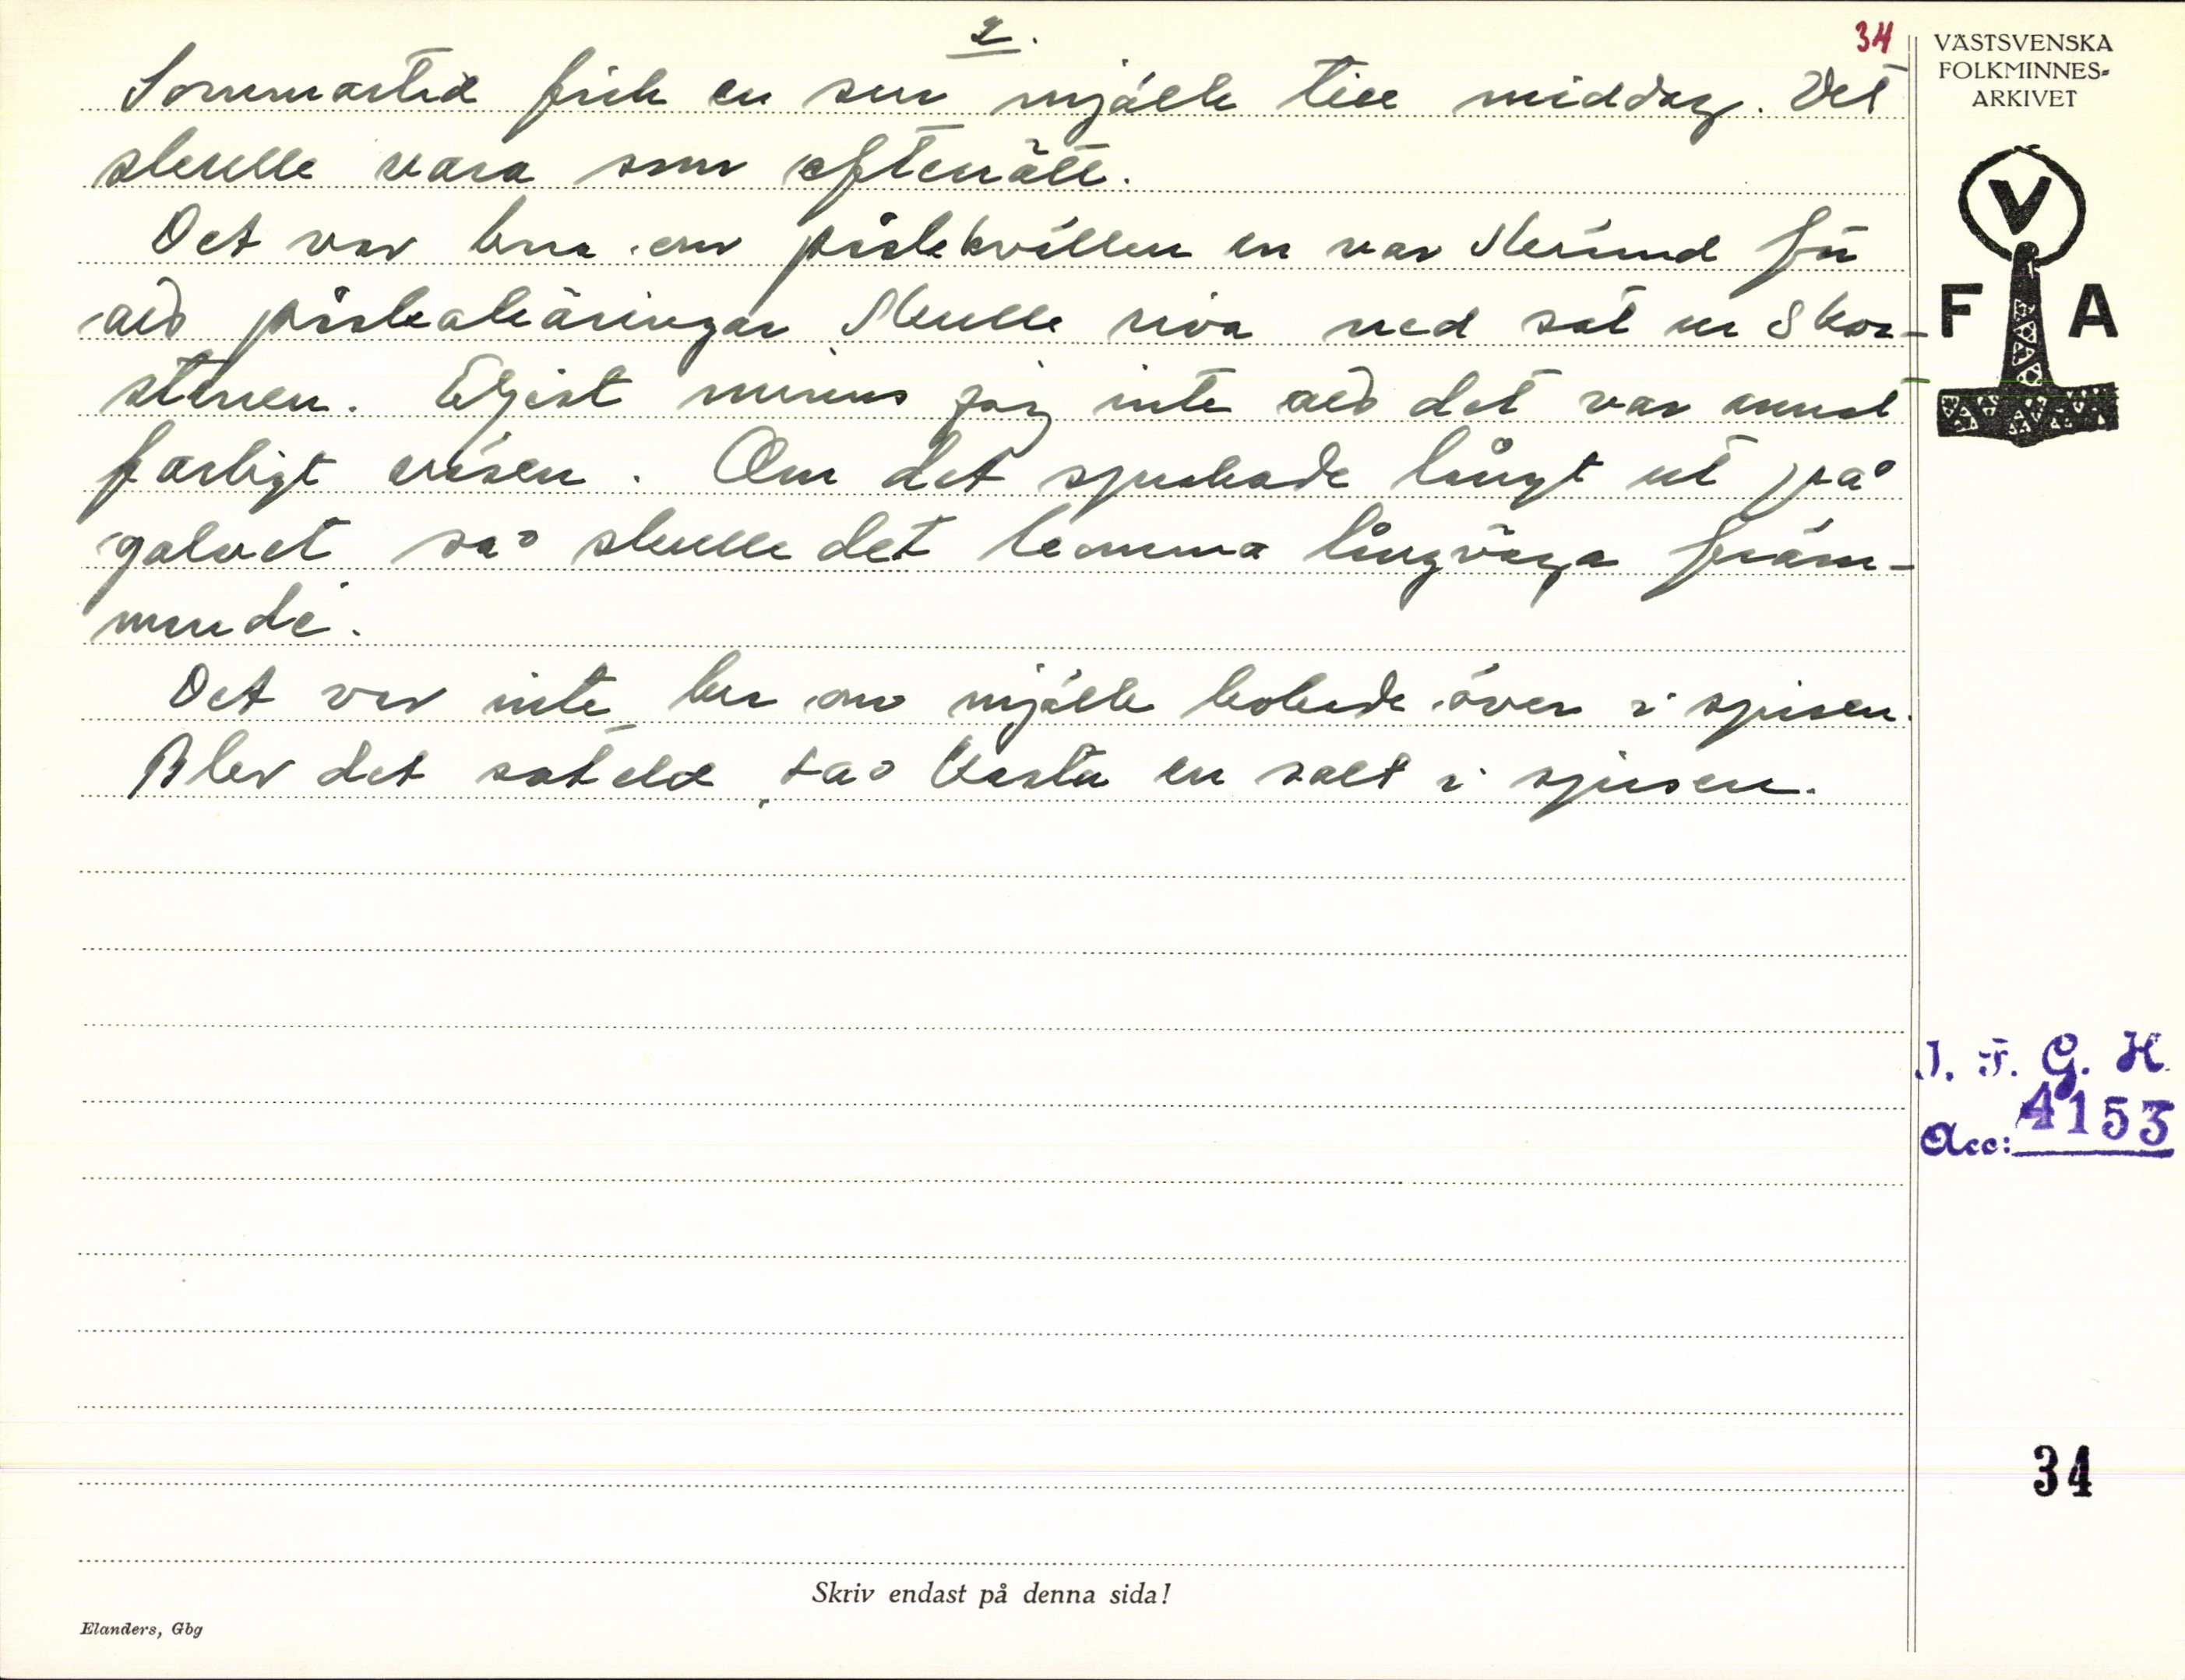 2.
34
VÄSTSVENSKA
FOLKMINNES-
ARKIVET
V
F A
Sommartid fick en sur mjölk till middag. Det
skulle vara som efterrätt.
Det var bra om påskkvällen en var för
att påskakäringar skulle riva ned sot ur skor-
stenen. Eljest minns jag inte att det var annat
farligt Om det sprakade långt ut på
golvet så skulle det komma långväga främ-
mande.
Det var inte bra om mjölk kokade över i spisen.
Blev det soteld, så kasta en salt i spisen.
I. F. G. H.
Acc: 4153
34
Skriv endast på denna sida!
Elanders, Gbg